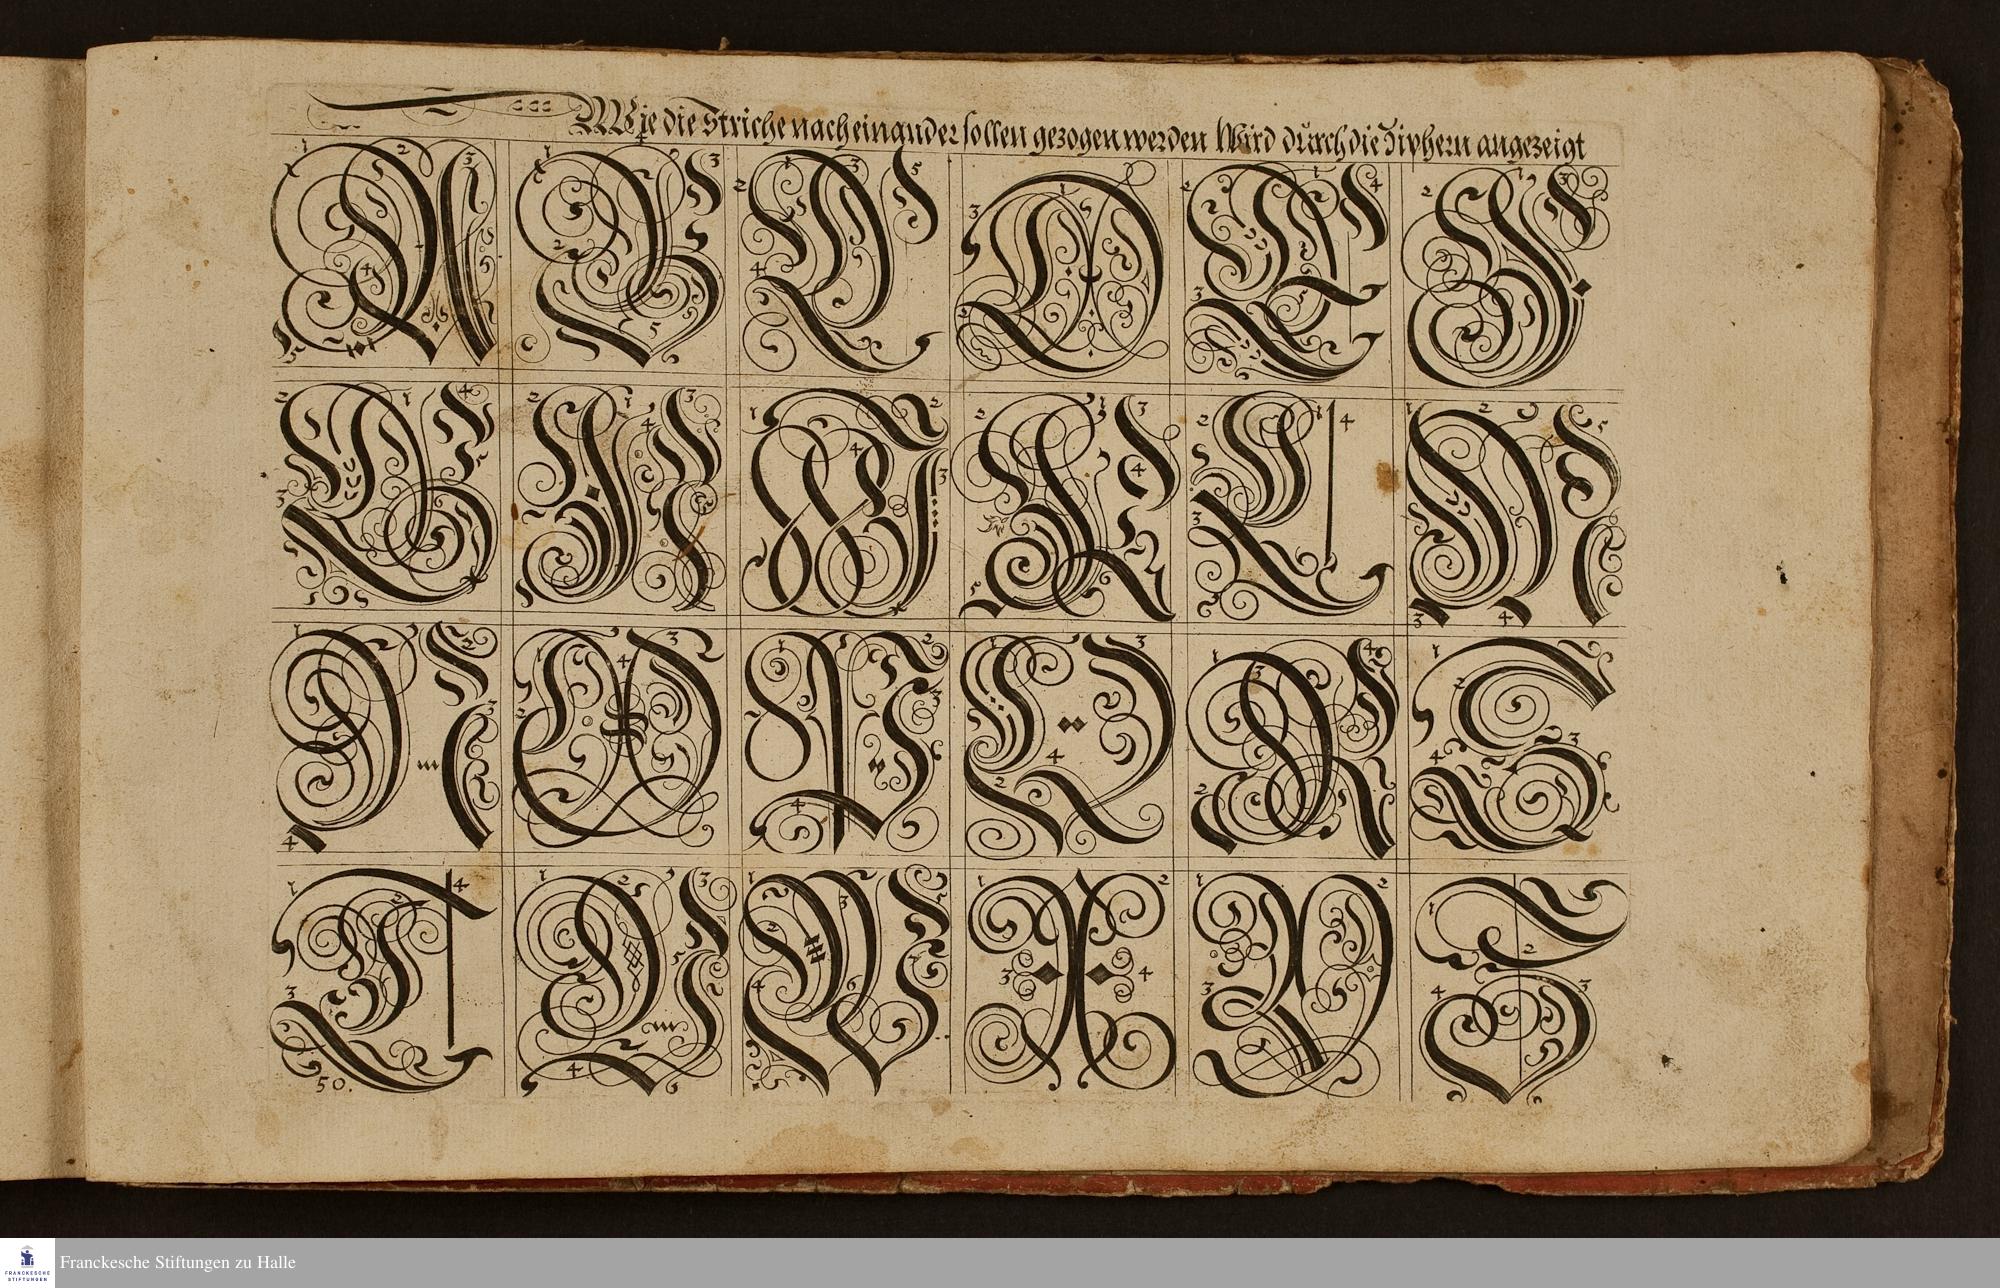 Wie die Striche nach einander sollen gezogen werden Wird dürch die Ziphern angezeigt
A B C D E F
G H I K L M
N O P Q R S
T V W X Y Z
50.
FRANCKESCHE STIFTUNGEN
Franckesche Stiftungen zu Halle